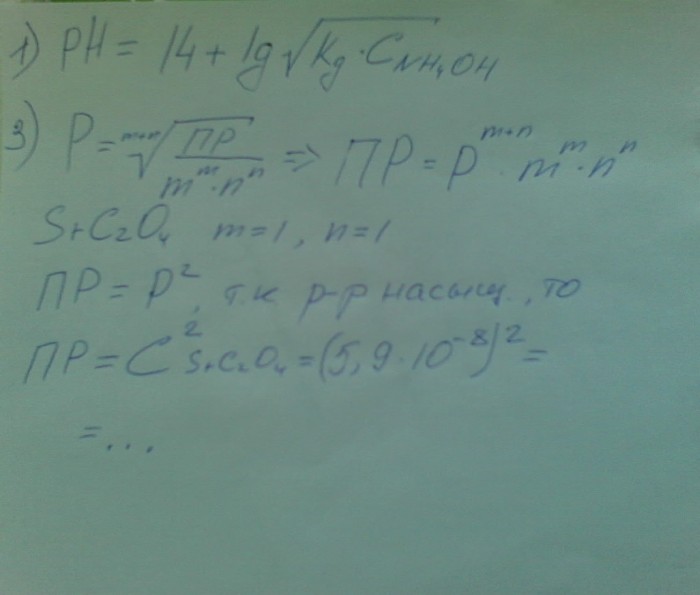 1) PH = 14 + lg√(Kg · C NH₄OH)
3) P = ᵐ⁺ⁿ√(ПР / mᵐ · nⁿ) => ПР = P^m+n · mᵐ · nⁿ
SrC₂O₄ m=1, n=1
ПР = P², т.к р-р насыщ., то
ПР = C² SrC₂O₄ = (5,9 · 10⁻⁸)² =
= ...